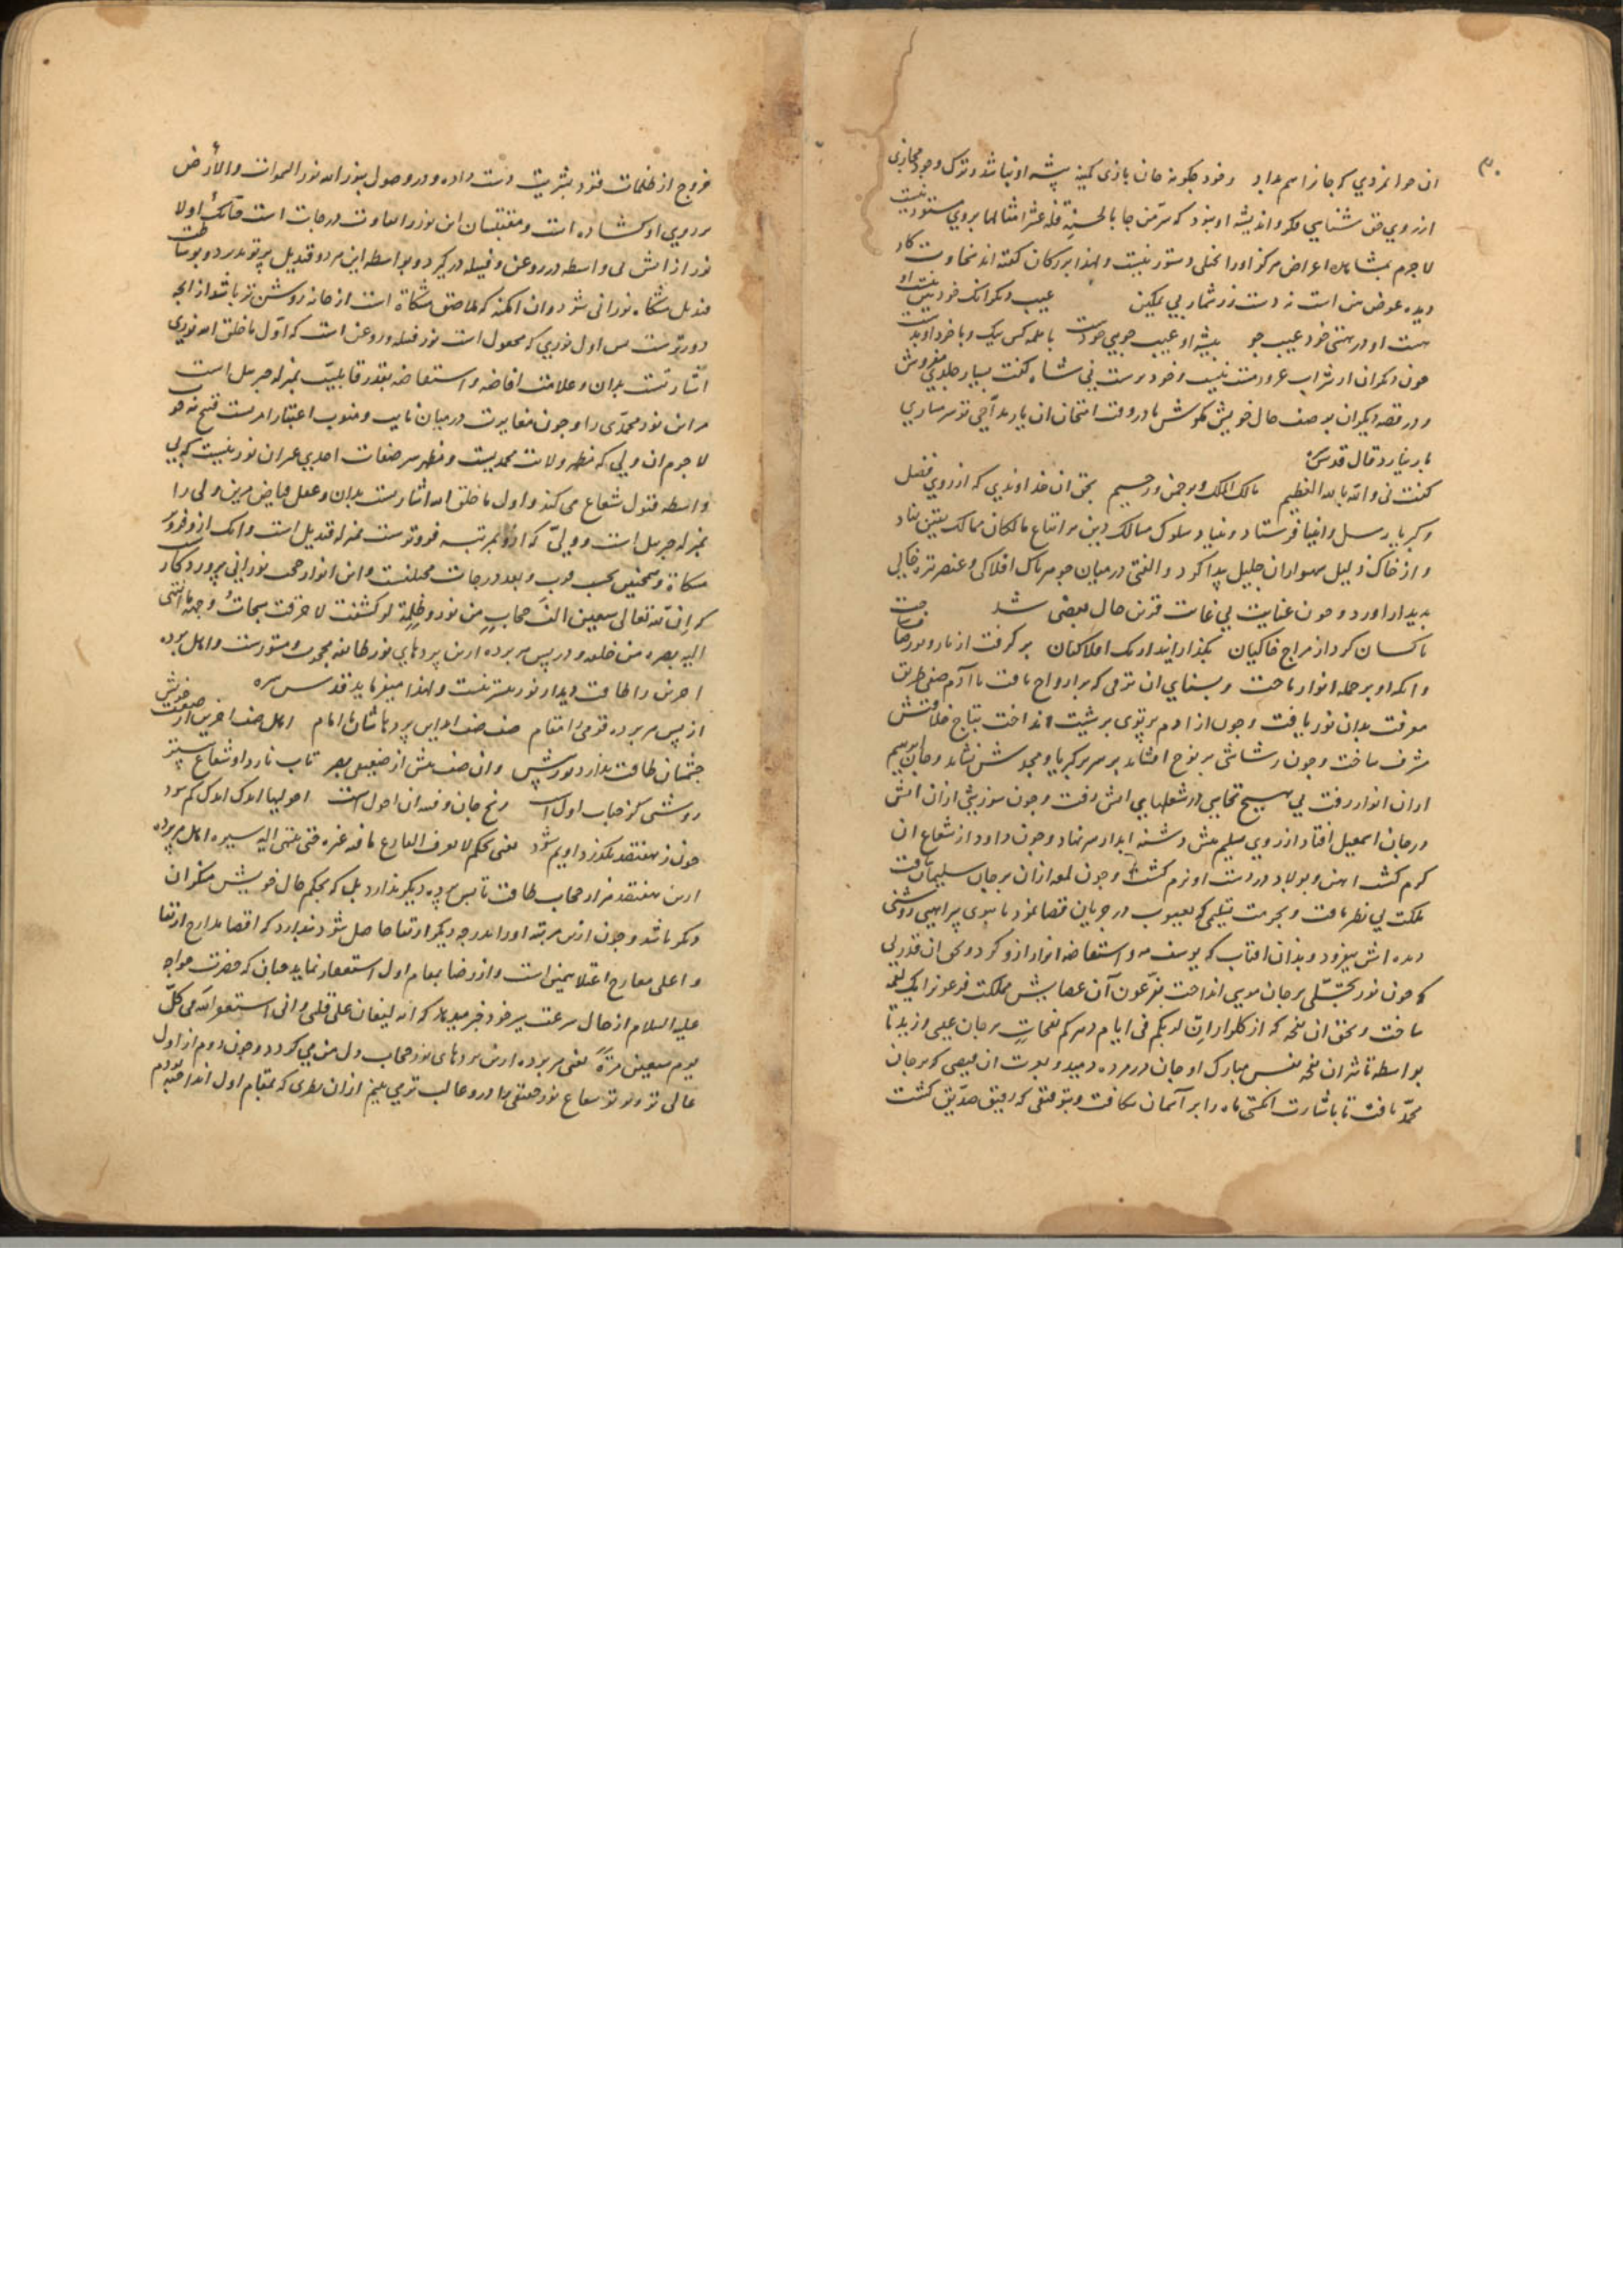 ان جوانمردی که جانرا هم بداد وخود چکونه جان بازی کمینه پیشه او نباشد وترک وجود مجازی
از روی حق شناسی فکر واندیشه او بنود که سر من جا بالحسنة فله عشر امثالها بروی مستور نیست
لاجرم بمشاهده اعواض هرکز اورا بخلی دستور نیست ولهذا بزرکان کفته اند سخاوت کار
دیده عوض بین است نه دست زرشمار بی تمکین عیب دیکرانک خود بین نیست او
هست او در هستی خود عیب جو پیشه او عیب جویی خودست با همه کس نیک وبا خود او بدست
چون دیکران از شراب غرور مست نیست وخود پرست نی شاه کفت بسیار جلدی مفروش
ودر قصه دیکران بوصف حال خویش مکوش تا در وقت امتحان ان یار بد آیی تو سر ساری
بار نیارد قال قدس سره
کفت نی والله بالله العظیم مالک الملک وبرحمن ورحیم بحق ان خداوندی که از روی فضل
وکبریا رسل وانبیا فرستاد وبنیاد سلوک مسالک دین بر اتباع مالکان ممالک یقین نهاد
واز خاک ذلیل شهسواران جلیل پیدا کرد والفتی در میان جوهر پاک افلاکی وعنصر تیره خاکی
پدیدار اورد وچون عنایت بی غایت قرین حال بعضی شد
پاکشان کرد از مزاج خاکیان بکذرانید از تک افلاکیان بر کرفت از نار ونور صاف ساخت
وانکه او بر جمله انوار تاخت وبسنای ان برقی که بر ارواح تافت تا آدم صفی طریق
معرفت بدان نور یافت وچون از ادم پرتوی بر شیث انداخت بتاج خلافتش
مشرف ساخت وچون رشاشی بر نوح افشاند بر سریر کبریا ومجدش نشاند وجان ابرهیم
از ان انوار رفت بی هیچ تحاشی در شعلهای اتش رفت وچون سوزش ازان اتش
در جان اسمعیل افتاد از روی تسلیم پیش دشنه ابدار سر نهاد وجون داود از شعاع ان
کرم کشت اهن وپولاد در دست او نرم کشت وجون لمعه ازان بر جان سلیمان تافت
مملکت بی نظیر یافت وبحرمت تسلیمی که یعقوب در جریان قضا نمود تا ببوی پیراهنی روشنی
دیده اش بیفزود وبذان افتاب که یوسف مه رو استفاضه انوار ازو کرد وبحق ان قدرتی
که چون نور تجلی بر جان موسی انداخت بفرعون آن عصایش مملکت فرعونرا یک لقمه
ساخت وبحق ان نفحه که از کلزار ان لربکم فی ایام دهرکم نفحات بر جان عیسی وزید تا
بواسطه تاثیر ان نفحه نفس مبارک او جان در مرده دمید وبعزت ان فیضی که بر جان
محمد تافت تا باشارت انکشتی ماه را بر آسمان شکافت وبتوفیقی که رفیق صدیق کشت
خروج از ظلمات قیود بشریت دست داده ودر وصول بنور الله نور السموات والأرض
بر روی او کشاده است ومقتبسان این نور را تفاوت درجات است چنانک اولا
نور از اتش بی واسطه در روغن وفتیله در کیرد وبواسطه این هر دو قندیل پرتو پذیرد وبوساطت
قندیل مشکاة نورانی شود وان امکنه که ملاصق مشکاة است از خانه روشن تر باشد از انچه
دورترست پس اول نوری که مجعول است نور فتیله وروغن است که اول ما خلق الله نوری
اشارتست بدان وعلامت افاضه واستفاضه بقدر قابلیت بمنزله جبریل است
مر این نور محمدی را وچون مغایرت در میان نایب ومنوب اعتبار امریست قبیح نه خوب
لاجرم ان ولی که مظهر ولایت محمدیست ومظهر سر صفات احدی عین ان نوریست که بی
واسطه قبول شعاع می کند واول ما خلق الله اشارتست بدان وعقل فیاض مر این ولی را
بمنزله جبریل است وولیی که ازو بمرتبه فروترست بمنزله قندیل است وانک ازو فروتر
مشکاة وهمچنین بحسب قرب وبعد درجات مختلفست واین انوار حجب نورانی پروردکار
که ان لله تعالی سبعین الف حجاب من نور وظلمة لو کشفت لاحرقت سبحات وجهه ما انتهی
الیه بصره من خلقه ودر پس هر پرده ازین پردهای نور طایفه محجوب ومستورست واهل پرده
اخرین را طاقت دیدار نور بیشتر نیست ولهذا میفرماید قدس سره
از پس هر پرده قومی را مقام صف صف اند این پردهاشان تا امام اهل صف اخرین از ضعف خویش
چشمشان طاقت ندارد نور پیش وان صف پیش از ضعیفی بصر تاب نارد او شعاع بیشتر
روشنی کز حیات اول است رنج جان وفتنه ان احول است احولیها اندک اندک کم شود
چون ز هفتصد بکذرد او یم شود یعنی بحکم لا یعرف الفارع ما فیه غیره حتی ینتهی الیه سیره اهل هر پرده
ازین هفتصد هزار حجاب طاقت تابش پرده دیکر ندارد بلکه بحکم حال خویش منکر ان
دیکر باشد وچون ازین مرتبه اورا بدرجه دیکر ارتقا حاصل شود پندارد که اقصا مدارج ارتقا
واعلی معارج اعتلا همین است واز رضا بمقام اول استغفار نماید چنان که حضرت خواجه
علیه السلام از حال سرعت سیر خود خبر میدهد که انه لیغان علی قلبی وانی استغفر الله فی کل
یوم سبعین مرة یعنی هر پرده ازین پردهای نور حجاب دل من می کردد وچون دوم از اول
عالی تر وپرتو شعاع نور حقیقی را درو غالب تر می بینم ازان نظری که بمقام اول انداخته بودم